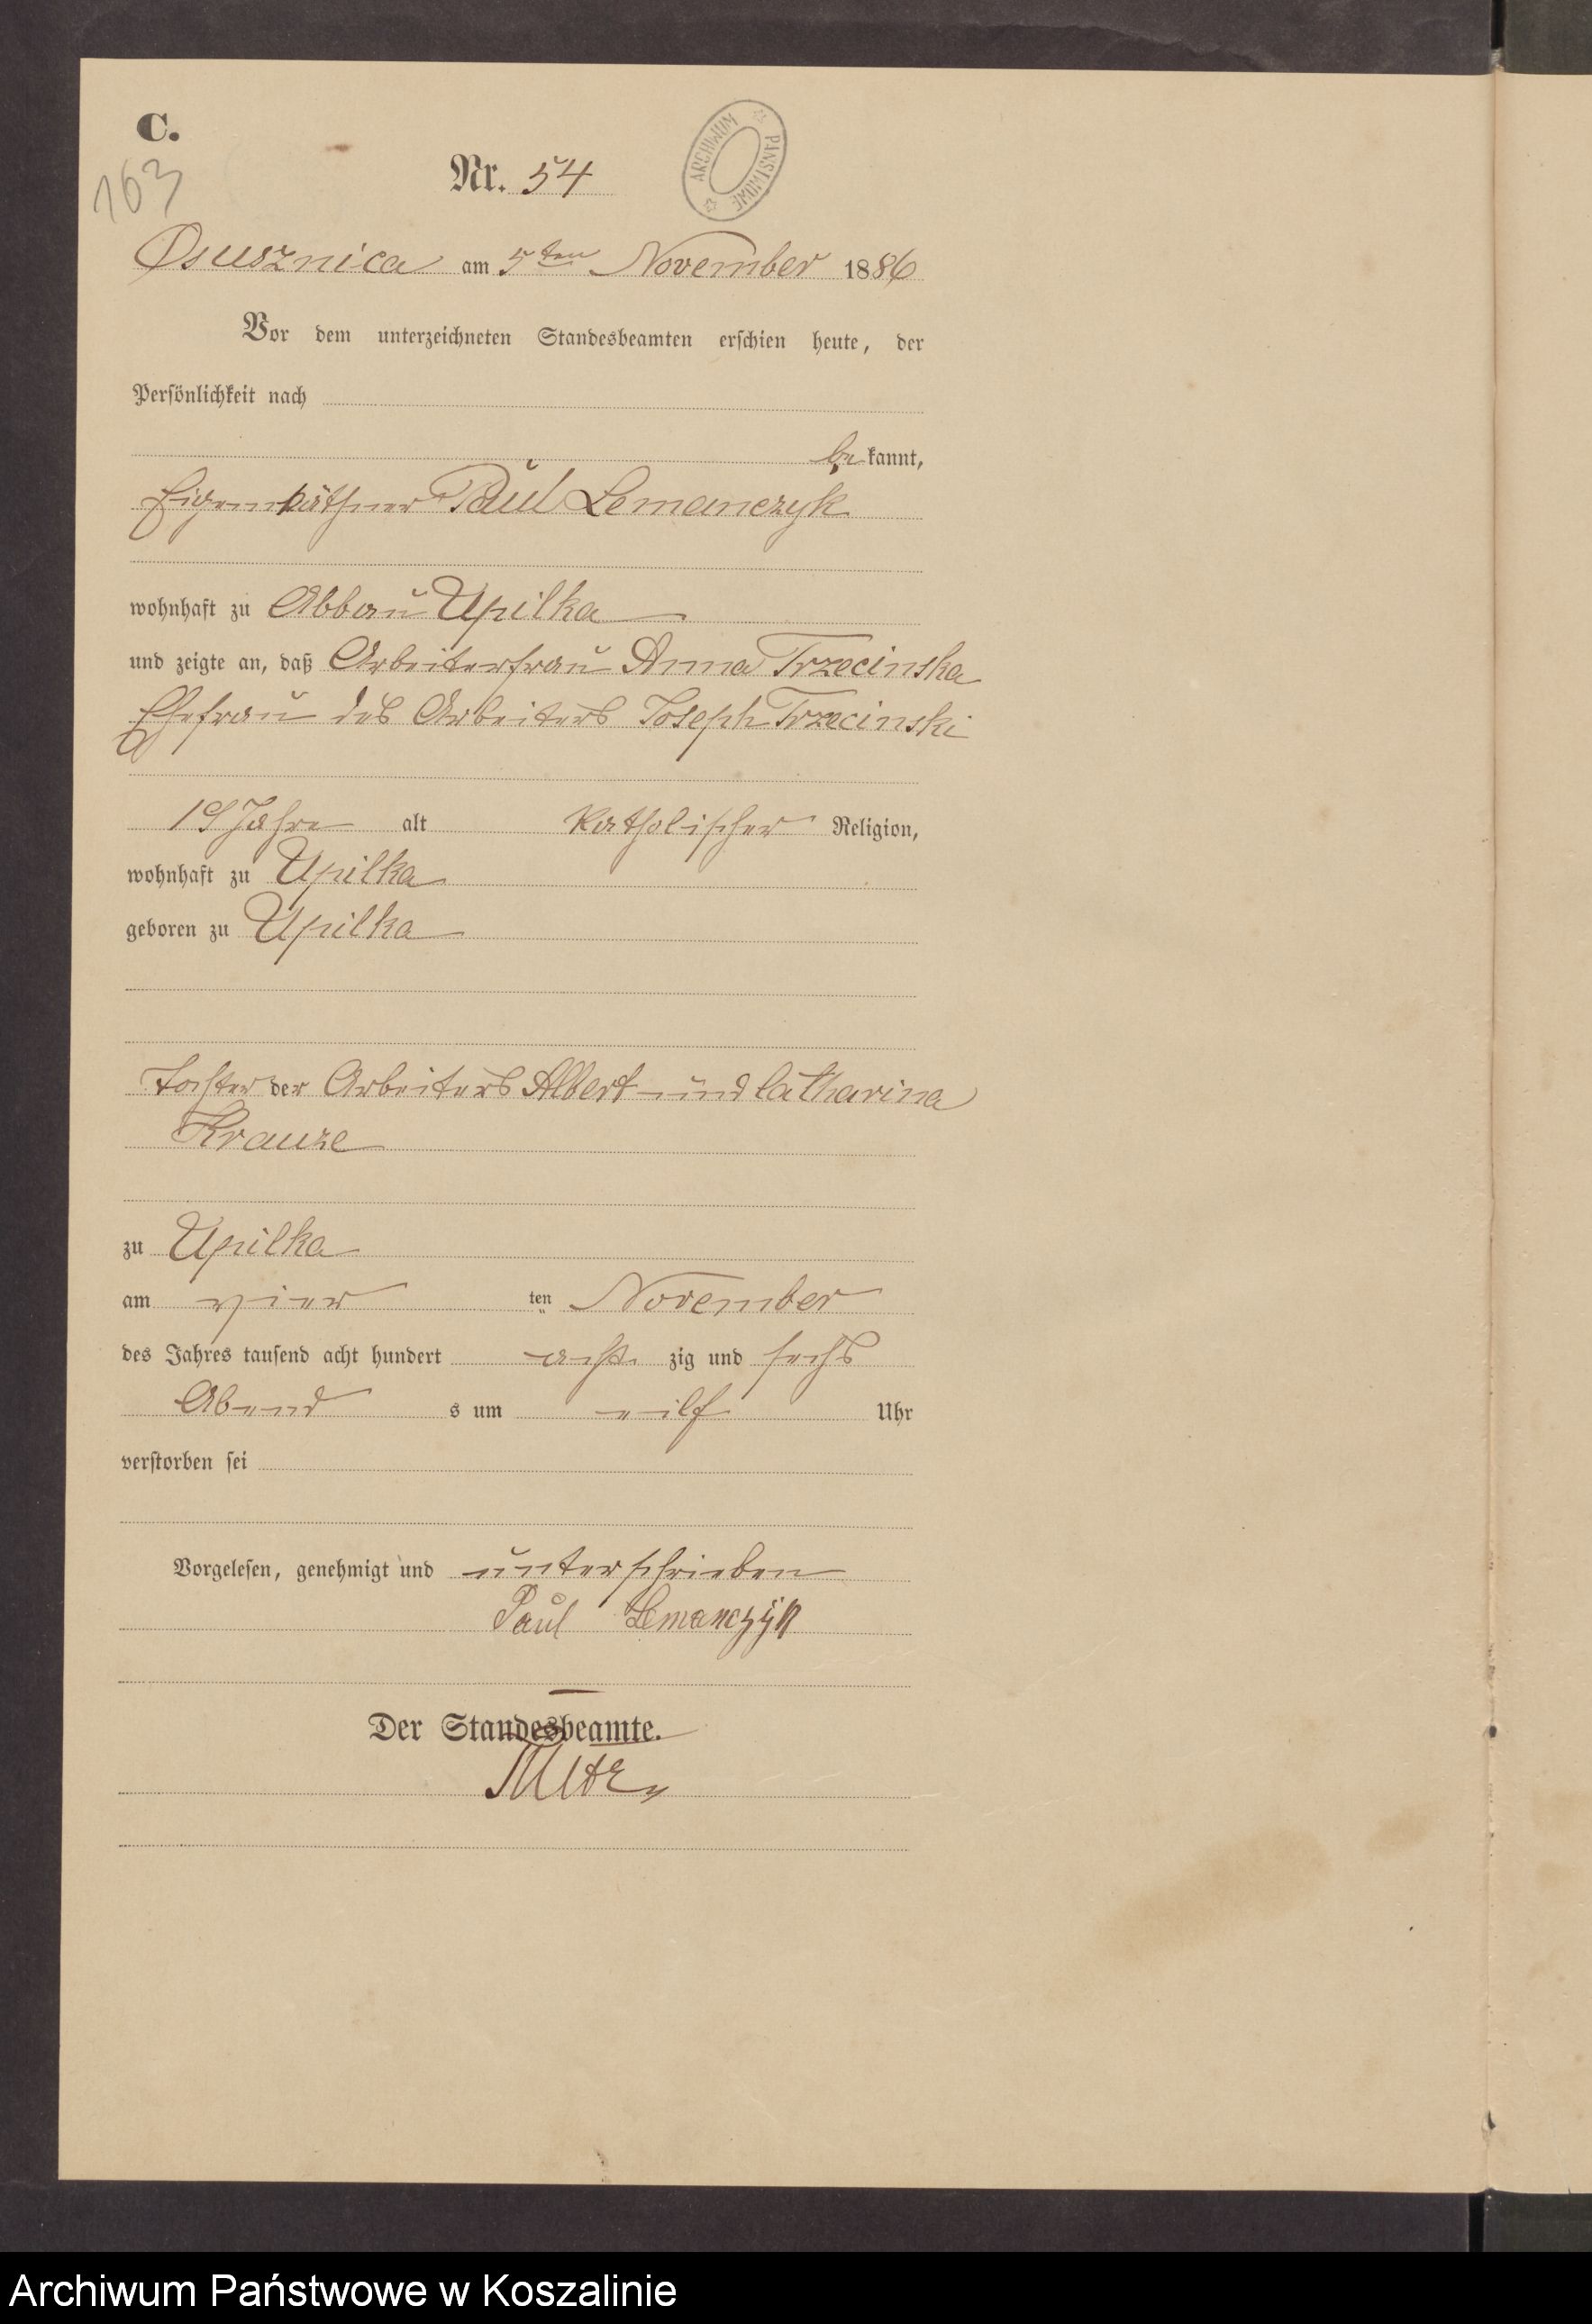 C.
163
Nr. 54
ARCHIWUM PAŃSTWOWE
Osusznica am 5ten November 1886
Vor dem unterzeichneten Standesbeamten erschien heute, der
Persönlichkeit nach
be kannt,
Eigenkäthner Paul Lemanczyk
wohnhaft zu Abbau Upilka
und zeigte an, daß Arbeiterfrau Anna Trzecinska
Ehefrau des Arbeiters Joseph Trzecinski
19 Jahre alt katholischer Religion,
wohnhaft zu Upilka
geboren zu Upilka
Tochter der Arbeiters Albert und Catharina
Krauze
zu Upilka
am vier ten November
des Jahres tausend acht hundert acht zig und sechs
Abend s um eilf Uhr
verstorben sei
Vorgelesen, genehmigt und unterschrieben
Paul Lemanczyk
Der Standesbeamte.
Archiwum Państwowe w Koszalinie